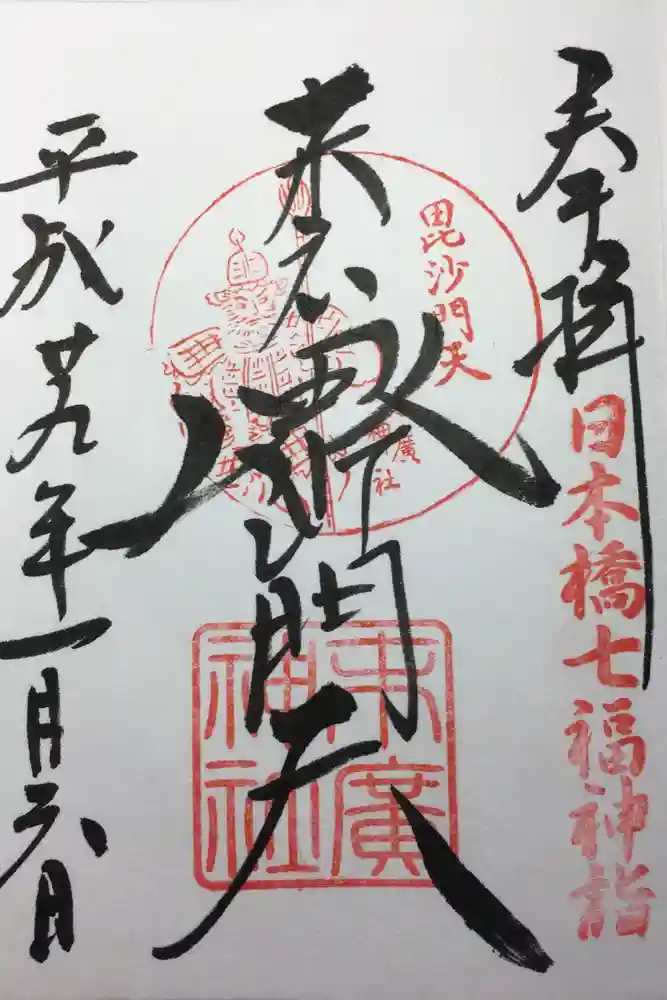 奉拝
日本橋七福神詣
末広毘沙門天
毘沙門天
末廣
神社
平成廿九年一月六日